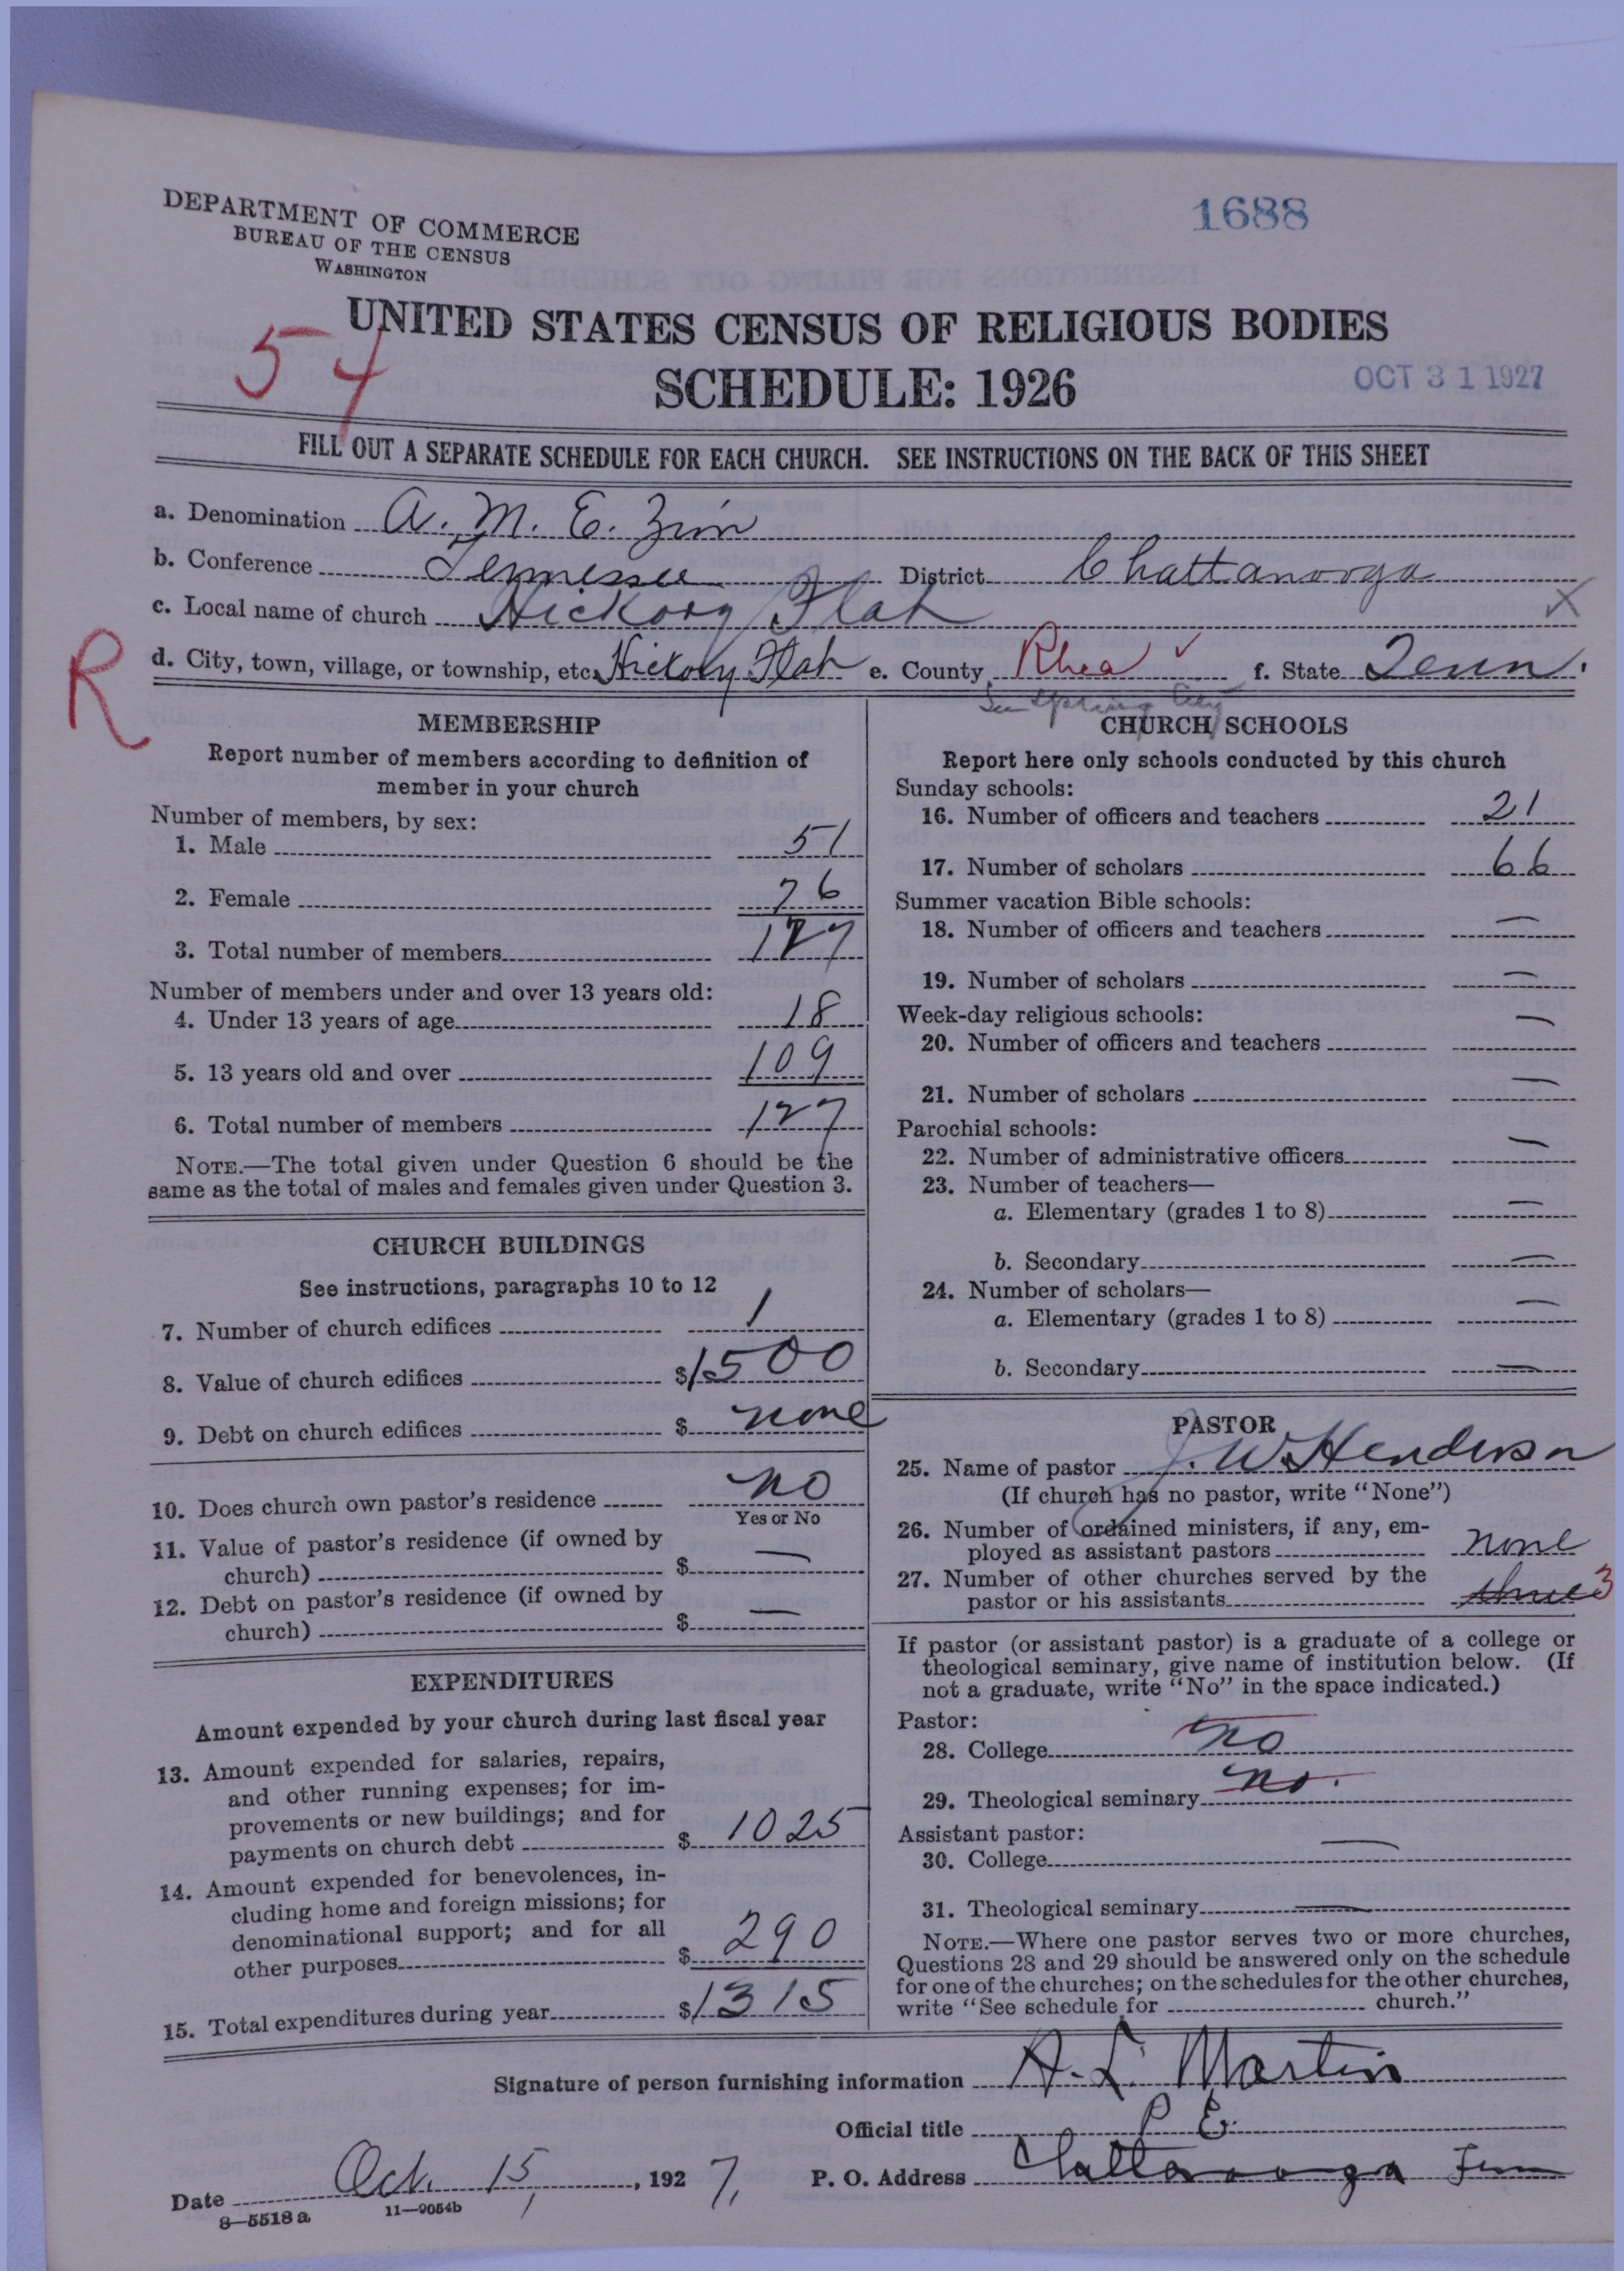 DEPARTMENT OF COMMERCE
BUREAU OF THE CENSUS
WASHINGTON
1688
UNITED STATES CENSUS OF RELIGIOUS BODIES
54
SCHEDULE: 1926
OCT 31 1927
FILL OUT A SEPARATE SCHEDULE FOR EACH CHURCH. SEE INSTRUCTIONS ON THE BACK OF THIS SHEET
a. Denomination A. M. E. Zion
b. Conference Tennessee District Chattanooga
c. Local name of church Hickory Flat X
R
d. City, town, village, or township, etc. Hickory Flat e. County Rhea ✓ f. State Tenn.
See Spring City
MEMBERSHIP
Report number of members according to definition of
member in your church
Number of members, by sex:
1. Male 51
2. Female 76
3. Total number of members 127
Number of members under and over 13 years old:
4. Under 13 years of age 18
5. 13 years old and over 109
6. Total number of members 127
NOTE.—The total given under Question 6 should be the
same as the total of males and females given under Question 3.
CHURCH BUILDINGS
See instructions, paragraphs 10 to 12
7. Number of church edifices 1
8. Value of church edifices $1500
9. Debt on church edifices $ none
10. Does church own pastor's residence no
Yes or No
11. Value of pastor's residence (if owned by
church) $ —
12. Debt on pastor's residence (if owned by
church) $ —
EXPENDITURES
Amount expended by your church during last fiscal year
13. Amount expended for salaries, repairs,
and other running expenses; for im-
provements or new buildings; and for
payments on church debt $ 1025
14. Amount expended for benevolences, in-
cluding home and foreign missions; for
denominational support; and for all
other purposes $ 290
15. Total expenditures during year $1315
CHURCH SCHOOLS
Report here only schools conducted by this church
Sunday schools:
16. Number of officers and teachers 21
17. Number of scholars 66
Summer vacation Bible schools:
18. Number of officers and teachers —
19. Number of scholars —
Week-day religious schools:
20. Number of officers and teachers —
21. Number of scholars —
Parochial schools:
22. Number of administrative officers —
23. Number of teachers—
a. Elementary (grades 1 to 8) —
b. Secondary —
24. Number of scholars—
a. Elementary (grades 1 to 8) —
b. Secondary —
PASTOR
25. Name of pastor J. W. Henderson
(If church has no pastor, write "None")
26. Number of ordained ministers, if any, em-
ployed as assistant pastors none
27. Number of other churches served by the
pastor or his assistants three 3
If pastor (or assistant pastor) is a graduate of a college or
theological seminary, give name of institution below. (If
not a graduate, write "No" in the space indicated.)
Pastor:
28. College no
29. Theological seminary no.
Assistant pastor:
30. College —
31. Theological seminary —
NOTE.—Where one pastor serves two or more churches,
Questions 28 and 29 should be answered only on the schedule
for one of the churches; on the schedules for the other churches,
write "See schedule for church."
Signature of person furnishing information A. L. Martin
Official title P E.
Date Oct. 15, 1927, P. O. Address Chattanooga Tenn
8—5518a 11—9054b